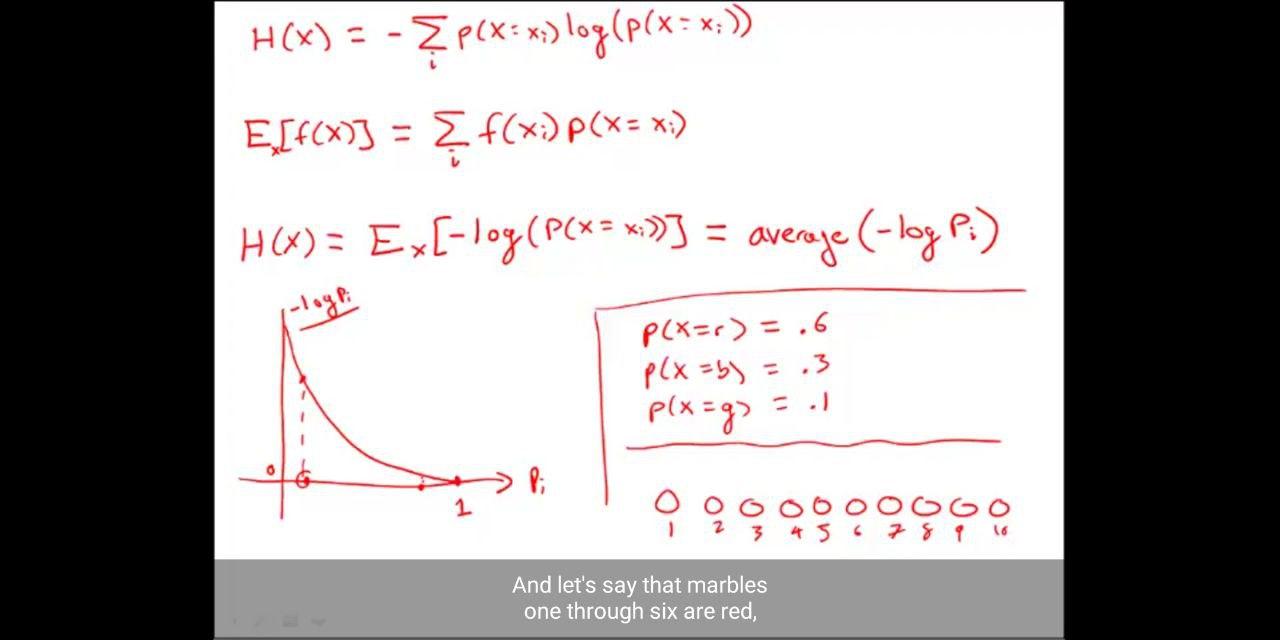 H(x) = - ∑ᵢ p(x=xᵢ) log(p(x=xᵢ))
Eₓ[f(x)] = ∑ᵢ f(xᵢ) p(x=xᵢ)
H(x) = Eₓ[-log(P(x=xᵢ))] = average(-log Pᵢ)
-log Pᵢ
0
1
Pᵢ
p(x=r) = .6
p(x=b) = .3
p(x=g) = .1
1 2 3 4 5 6 7 8 9 10
And let's say that marbles
one through six are red,